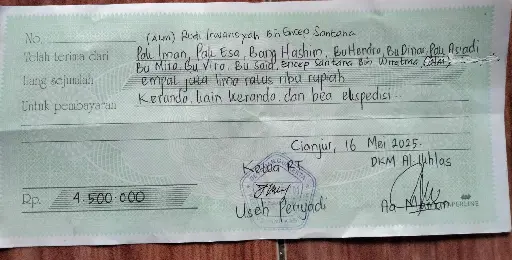 No. (Alm) Rudi Irwansyah Bin Encep Santana
Telah terima dari Pak Iman, Pak Esa, Bang Hashim, Bu Hendra, Bu Dinar, Pak Asiadi
Bu Mira, Bu Vira, Bu Said, Encep Santana Bin Wiratma (Alm)
Uang sejumlah empat juta lima ratus ribu rupiah
Untuk pembayaran Keranda, kain keranda, dan bea ekspedisi
Cianjur, 16 Mei 2025.
Ketua RT DKM Al-Ikhlas
Rp. 4.500.000
Useh Penyadi Aa
PAPERLINE